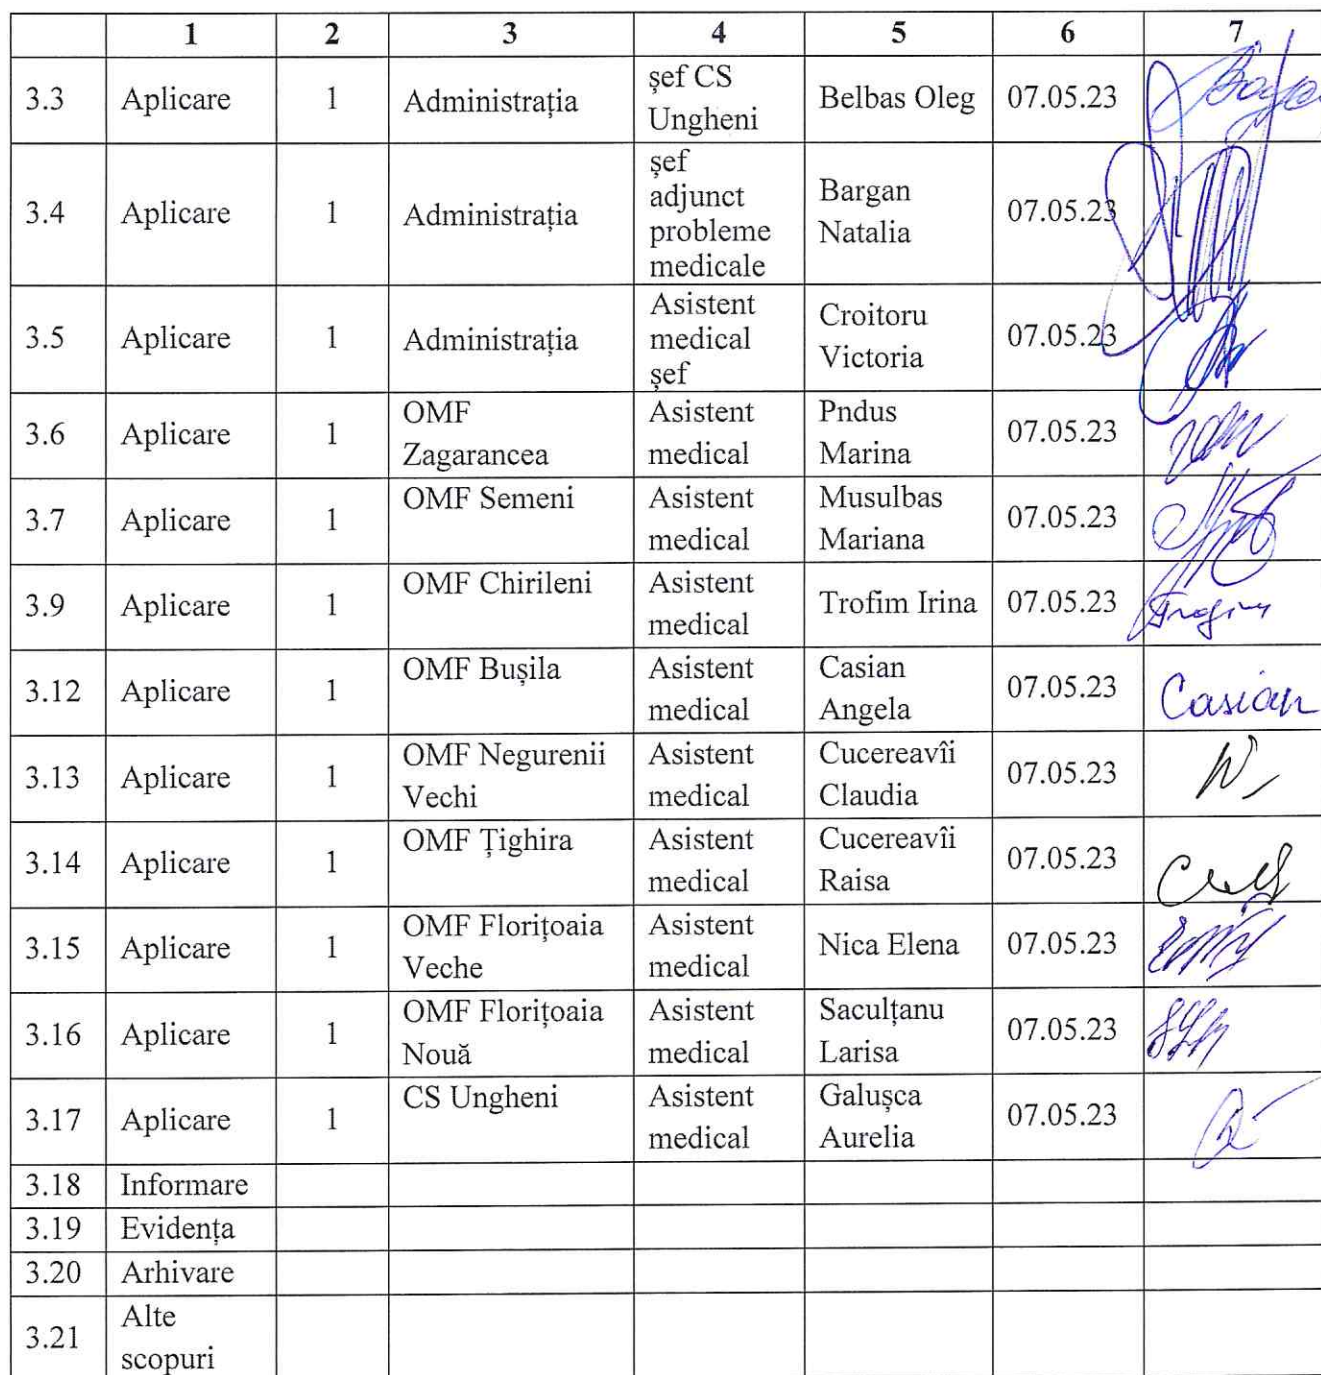 1 2 3 4 5 6 7
3.3 Aplicare 1 Administrația șef CS Ungheni Belbas Oleg 07.05.23
3.4 Aplicare 1 Administrația șef adjunct probleme medicale Bargan Natalia 07.05.23
3.5 Aplicare 1 Administrația Asistent medical șef Croitoru Victoria 07.05.23
3.6 Aplicare 1 OMF Zagarancea Asistent medical Pndus Marina 07.05.23
3.7 Aplicare 1 OMF Semeni Asistent medical Musulbas Mariana 07.05.23
3.9 Aplicare 1 OMF Chirileni Asistent medical Trofim Irina 07.05.23
3.12 Aplicare 1 OMF Bușila Asistent medical Casian Angela 07.05.23 Casian
3.13 Aplicare 1 OMF Negurenii Vechi Asistent medical Cucereavîi Claudia 07.05.23
3.14 Aplicare 1 OMF Țighira Asistent medical Cucereavîi Raisa 07.05.23
3.15 Aplicare 1 OMF Florițoaia Veche Asistent medical Nica Elena 07.05.23
3.16 Aplicare 1 OMF Florițoaia Nouă Asistent medical Saculțanu Larisa 07.05.23
3.17 Aplicare 1 CS Ungheni Asistent medical Galușca Aurelia 07.05.23
3.18 Informare
3.19 Evidența
3.20 Arhivare
3.21 Alte scopuri